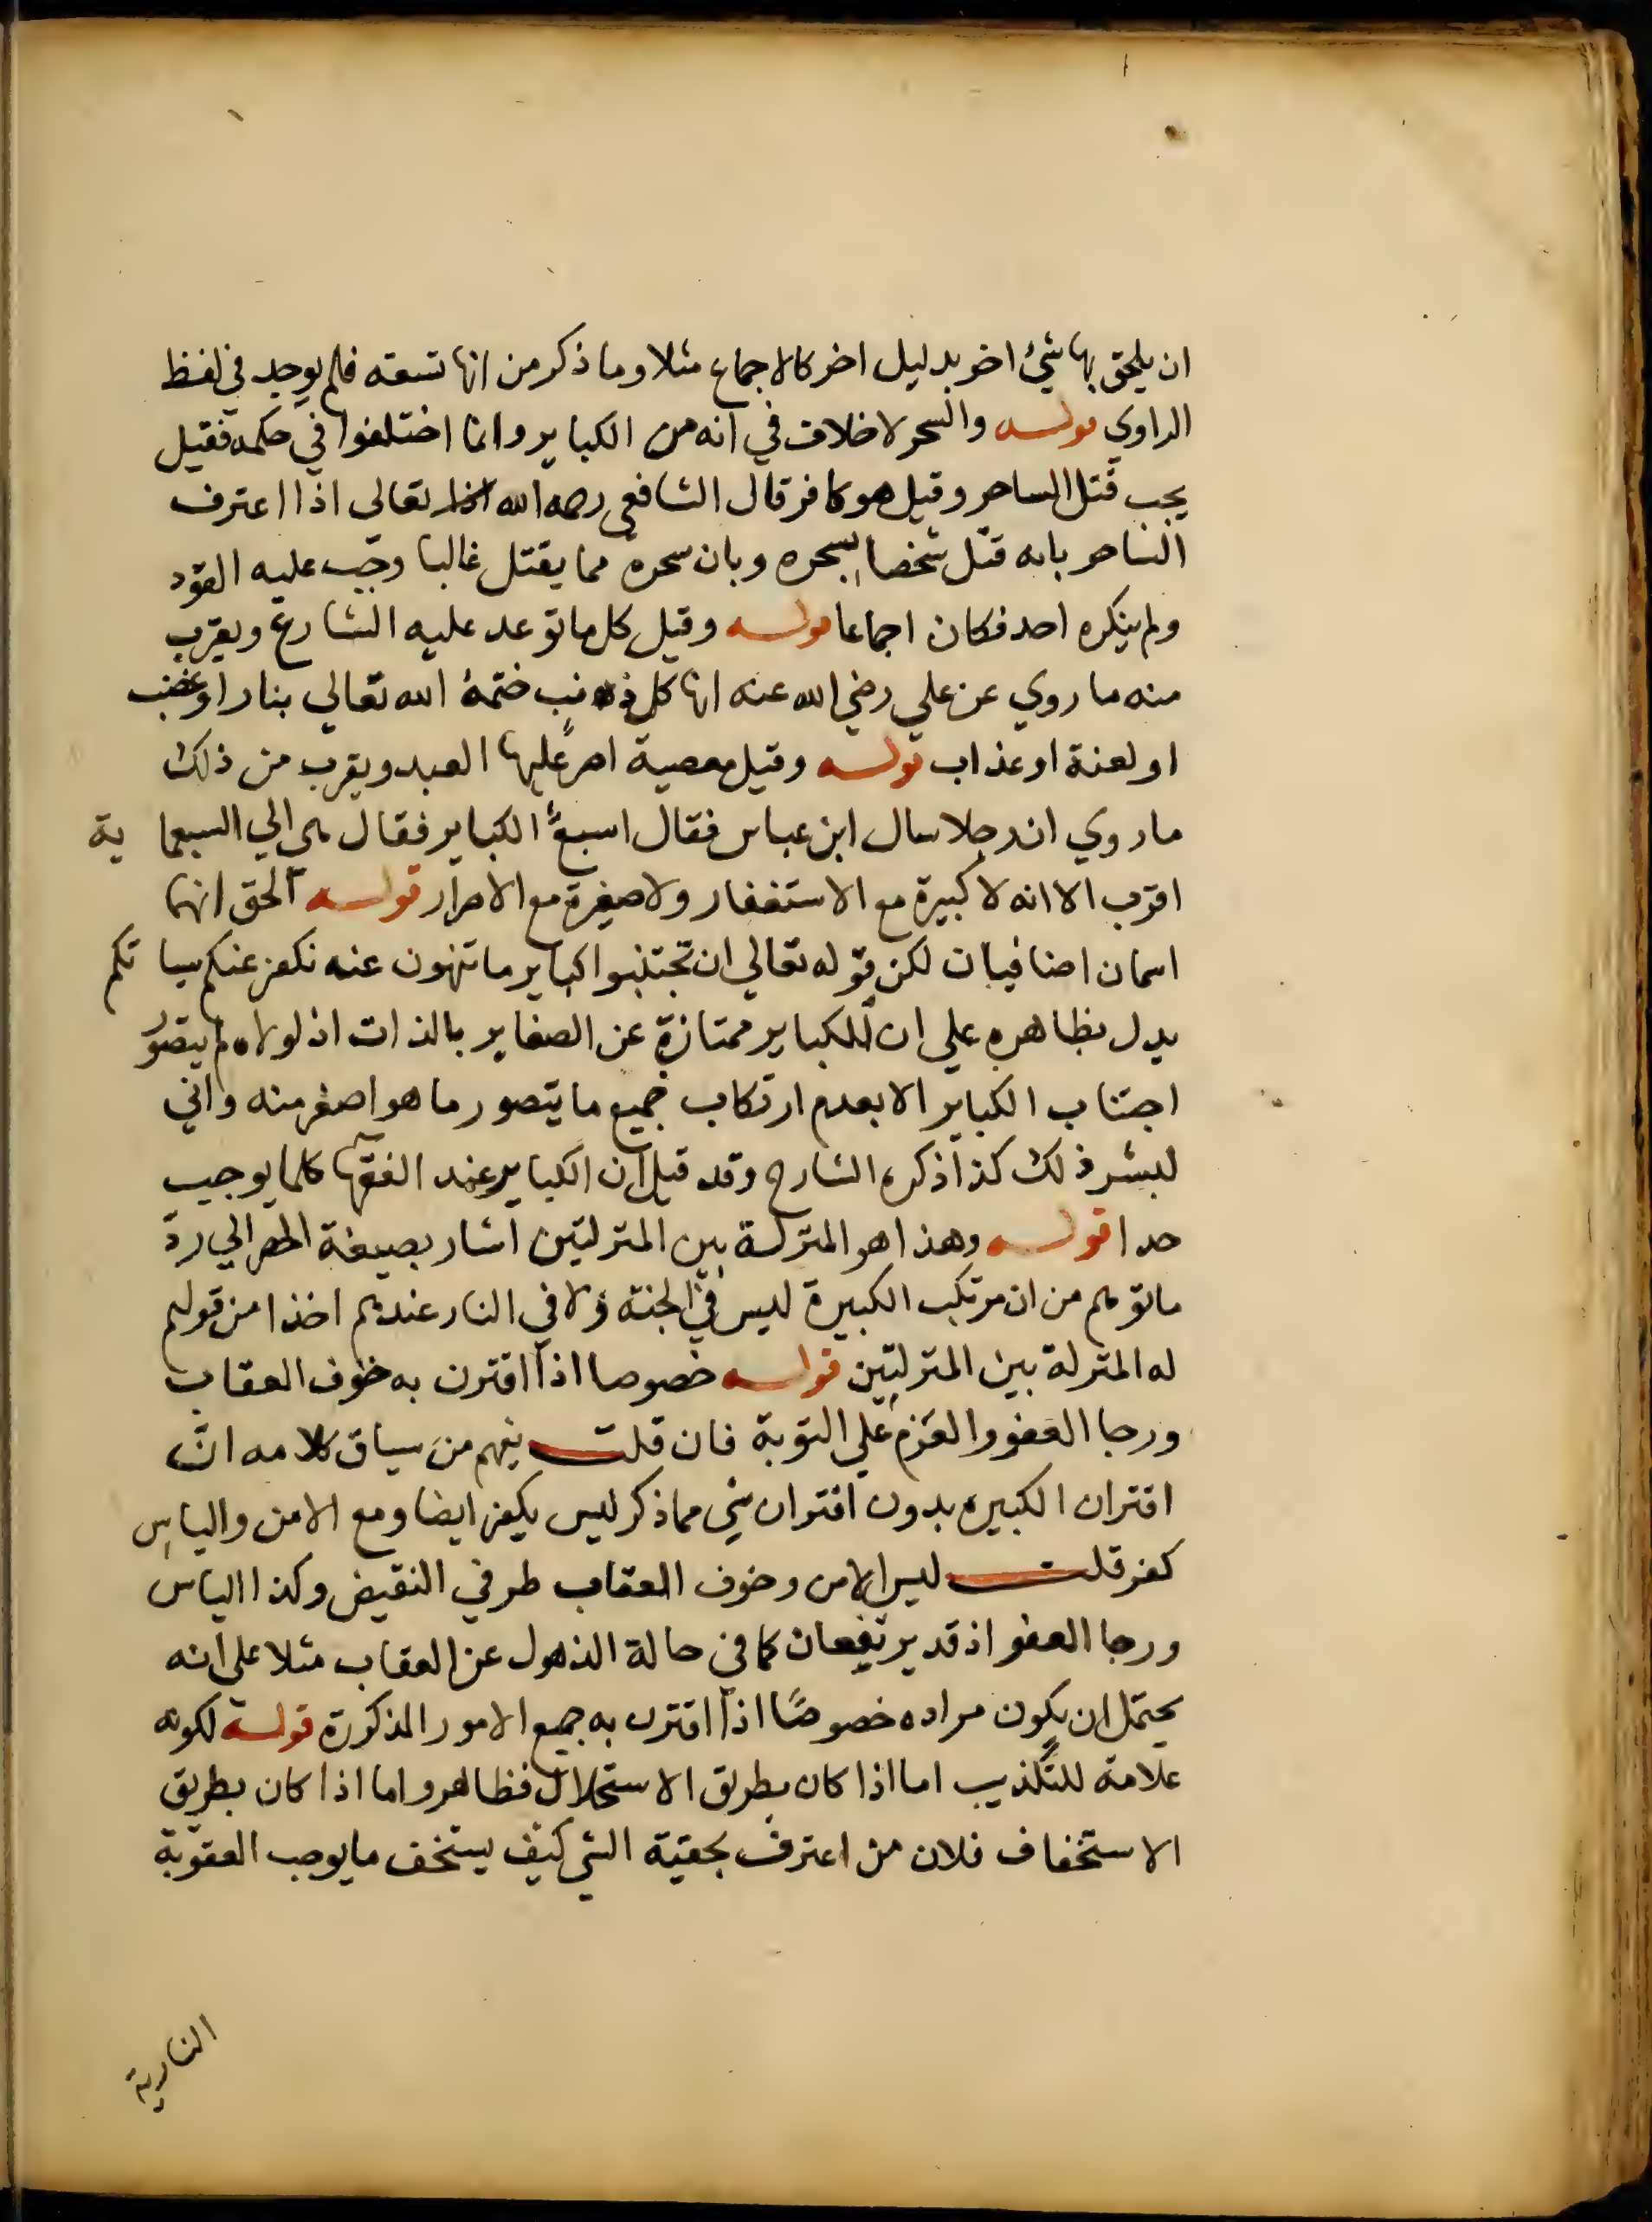 ان يلحق بها شيئ اخر بدليل اخر كالاجماع مثلا وما ذكر من انها تسعه فلم يوجد في لفظ
الراوي قوله والسحر لاخلاف في انه من الكباير وانما اختلفوا في حكمه فقيل
يجب قتل الساحر وقيل هو كافر قال الشافعي رحمه الله تعالى اذا اعترف
الساحر بانه قتل شخصا بسحره وبان سحره مما يقتل غالبا وجب عليه القود
ولم ينكره احد فكان اجماعا قوله وقيل كل ما توعد عليه الشارع ويقرب
منه ما روي عن علي رضي الله عنه انها كل ذنب ختمه الله تعالي بنار او غضب
او لعنة او عذاب قوله وقيل معصية اصر عليها العبد ويقرب من ذلك
ما روي ان رجلا سال ابن عباس فقال اسبع الكباير فقال هي الي السبعما ية
اقرب الا انه لا كبيرة مع الاستغفار ولا صغيرة مع الاصرار قوله الحق انهما
اسمان اضافيان لكن قوله تعالي ان تجتنبوا كباير ما تنهون عنه نكفر عنكم سيا تكم
يدل بظاهره علي ان الكباير ممتازة عن الصغاير بالذات اذ لولاه لم يتصور
اجتناب الكباير الا بعدم ارتكاب جميع ما يتصور ما هو اصغر منه واني
لبشر ذلك كذا ذكره الشارح وقد قيل ان الكباير عند الفقها كلما يوجب
حدا قوله وهذا هو المنزلة بين المنزلتين اشار بصيغة الحصر الي رد
ما توهم من ان مرتكب الكبيرة ليس في الجنة ولا في النار عندهم اخذا من قولهم
له المنزلة بين المنزلتين قوله خصوصا اذا اقترن به خوف العقاب
ورجا العفو والعزم علي التوبة فان قلت يفهم من سياق كلامه ان
اقتران الكبيره بدون اقتران شي مما ذكر ليس بكفر ايضا ومع الامن والياس
كفر قلت ليس الامن وخوف العقاب طرفي النقيض وكذا الياس
ورجا العفو اذ قد يرتفعان كما في حالة الذهول عن العقاب مثلا على انه
يحتمل ان يكون مراده خصوصًا اذا اقترن به جميع الامور المذكورة قوله لكونه
علامة للتكذيب اما اذا كان بطريق الاستحلال فظاهر واما اذا كان بطريق
الاستخفاف فلان من اعترف بحقية الشي كيف يستخف ما يوجب العقوبة
النارية